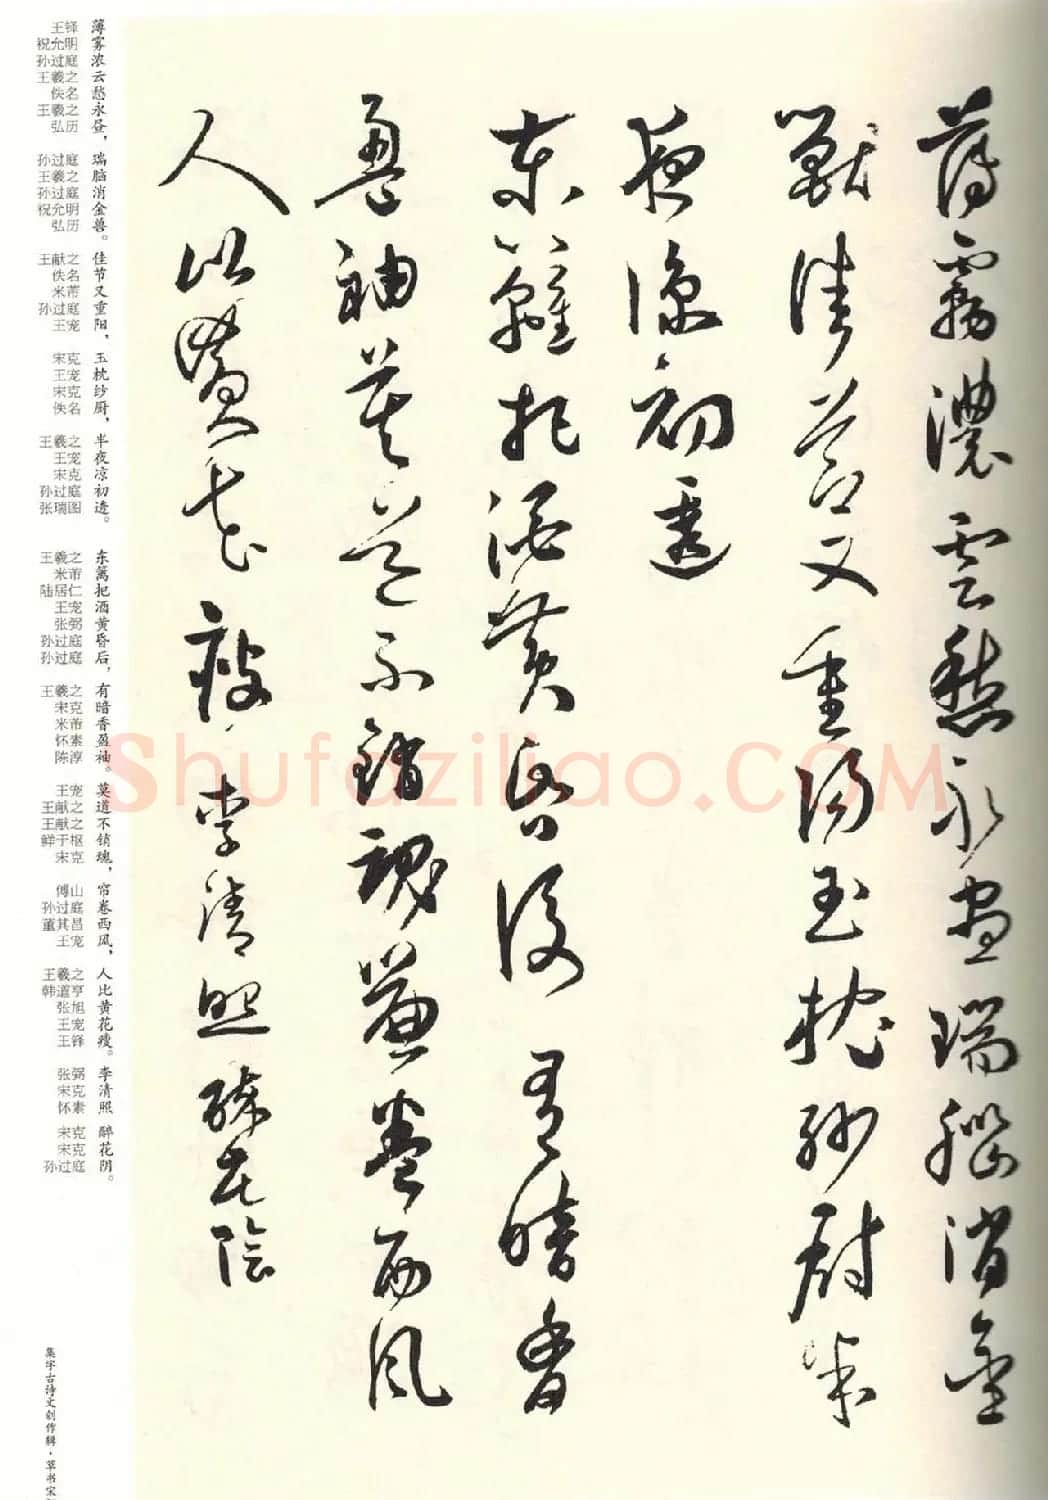 薄霧濃雲愁永晝瑞腦消金
獸佳節又重陽玉枕紗廚半
夜涼初透
東籬把酒黃昏後有暗香
盈袖莫道不銷魂簾卷西風
人比黃花瘦李清照醉花陰
薄雾浓云愁永昼，瑞脑消金兽。佳节又重阳，玉枕纱厨，半夜凉初透。东篱把酒黄昏后，有暗香盈袖。莫道不销魂，帘卷西风，人比黄花瘦。李清照 醉花阴。
王铎 祝允明 孙过庭 王羲之 佚名 王羲之 弘历 孙过庭 王羲之 孙过庭 祝允明 弘历 王献之 佚名 米芾 孙过庭 王宠 宋克 王宠 宋克 佚名 王羲之 王宠 宋克 孙过庭 张瑞图 王羲之 米芾 陆居仁 王宠 张弼 孙过庭 孙过庭 王羲之 宋克 米芾 怀素 陈淳 王宠 王献之 王献之 鲜于枢 宋克 傅山 孙过庭 董其昌 王宠 王羲之 韩道亨 张旭 王宠 王铎 张弼 宋克 怀素 宋克 宋克 孙过庭
集字古诗文创作辑·草书宋
Shufaziliao.COM